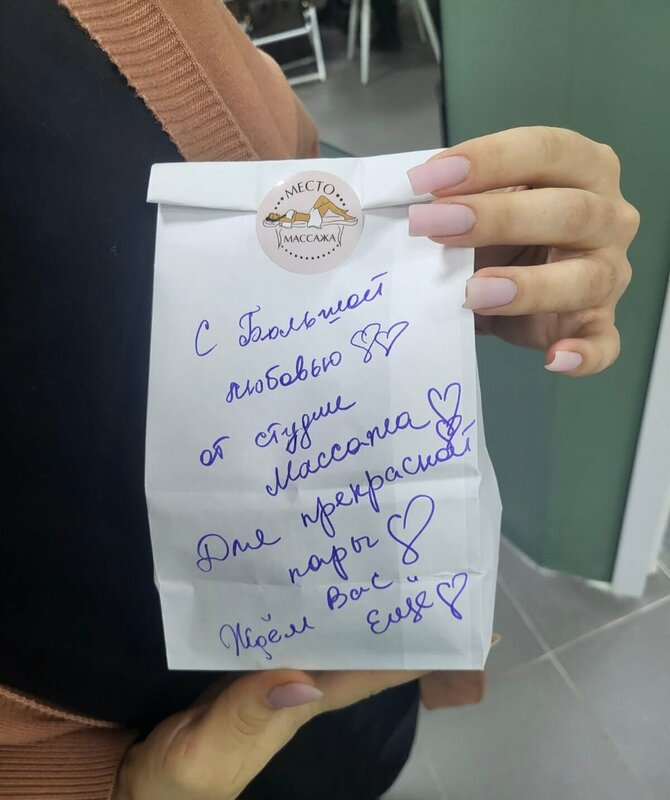 МЕСТО
МАССАЖА
С Большой
любовью
от студии
Массажа
Для прекрасной
пары
Ждём Вас
Ещё